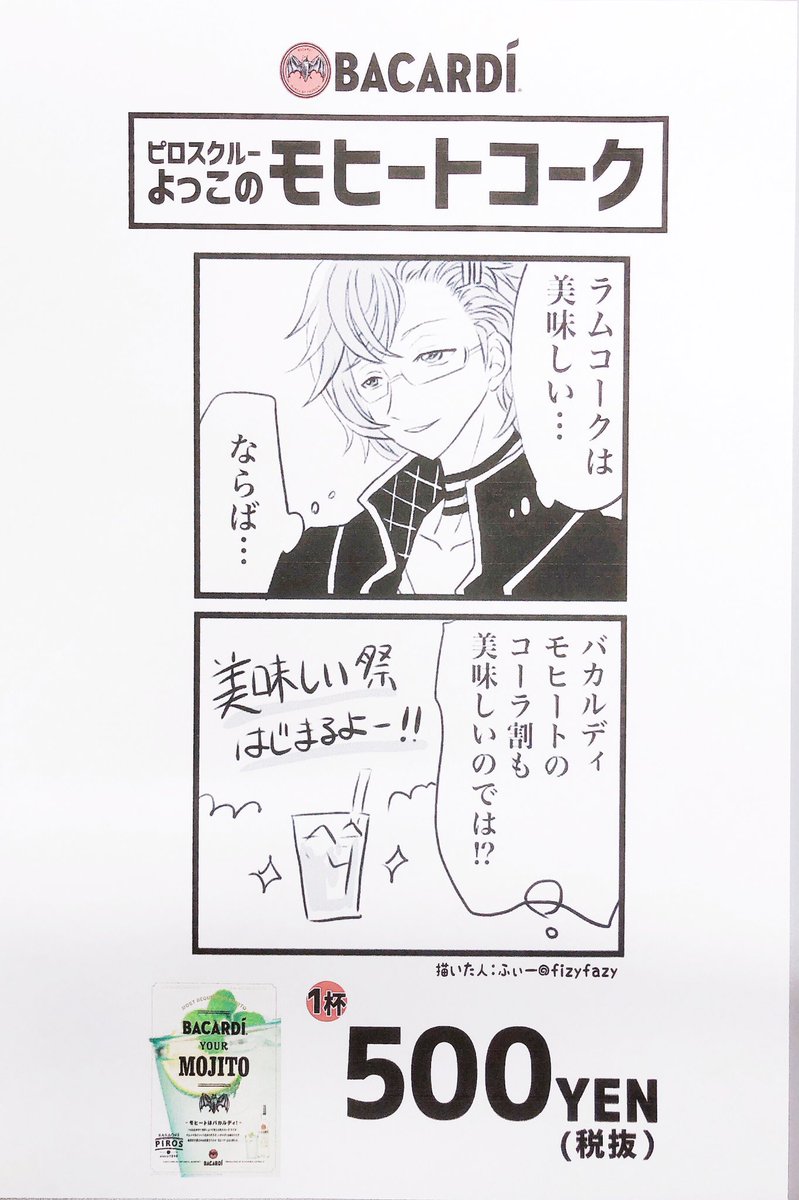 BACARDÍ
ピロスクルー
よっこの
モヒートコーク
ラムコークは
美味しい…
ならば…
バカルディ
モヒートの
コーラ割も
美味しいのでは!?
美味しい祭
はじまるよー!!
描いた人:ふぃー@fizyfazy
BACARDÍ
YOUR
MOJITO
モヒートはバカルディ!
PIROS
BACARDÍ
1杯
500YEN
(税抜)